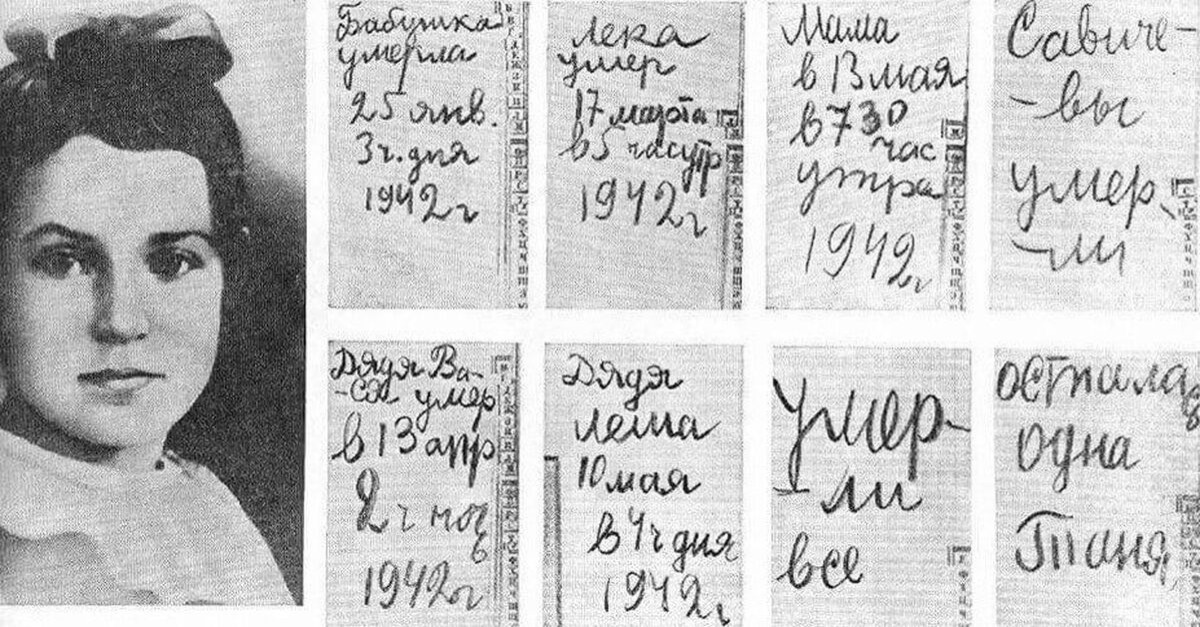 Бабушка
умерла
25 янв.
3ч. дня
1942 г
Лека
умер
17 марта
в 5 часутр
1942 г
Мама
в 13 мая
в 730
час
утра
1942 г
Савиче-
-вы
умер
-ли
Дядя Ва-
-ся умер
в 13 апр
2 ч ночь
1942 г
Дядя
Леша
10 мая
в 4 ч дня
1942 г
Умер-
-ли
все
Осталась
одна
Таня